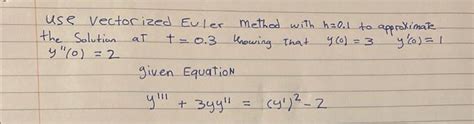 use vectorized Euler method with h=0.1 to approximate
the Solution at t = 0.3 Knowing That y(0) = 3 y'(0) = 1
y''(0) = 2
given Equation
y''' + 3yy'' = (y')² - 2